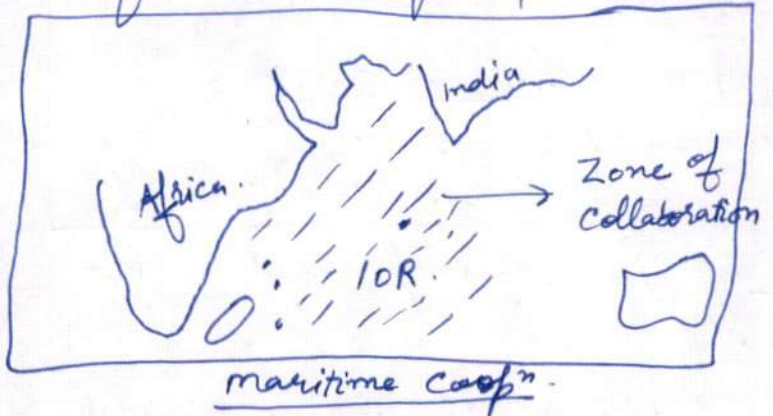 India
Africa.
Zone of
Collaboration
IOR.
maritime coopⁿ.